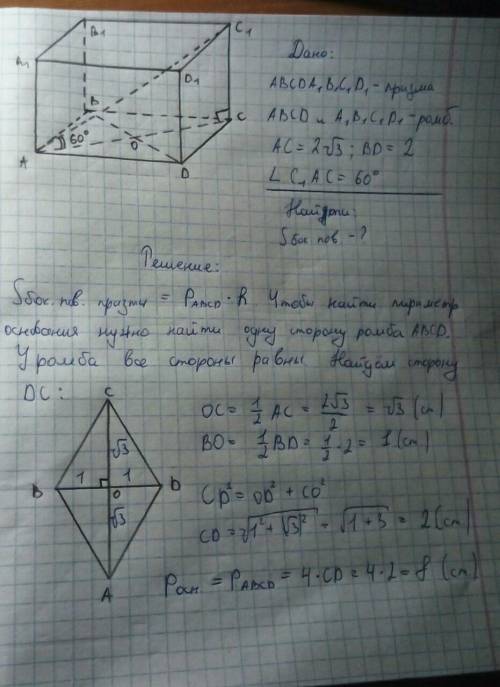 B1
C1
A1
D1
B
C
60°
O
A
D
Дано:
ABCDA1B1C1D1 - призма
ABCD и A1B1C1D1 - ромб.
AC = 2√3; BD = 2
∠ C1AC = 60°
Найти:
Sбок. пов. - ?
Решение:
Sбок. пов. призмы = PABCD · h. Чтобы найти периметр
основания нужно найти одну сторону ромба ABCD.
У ромба все стороны равны. Найдём сторону
DC:
C
√3
B
1
1
D
O
√3
A
OC = 1/2 AC = 2√3/2 = √3 (см)
BO = 1/2 BD = 1/2 · 2 = 1 (см)
CD² = OD² + CO²
CD = √1² + √3² = √1 + 3 = 2 (см)
Pосн = PABCD = 4 · CD = 4 · 2 = 8 (см)